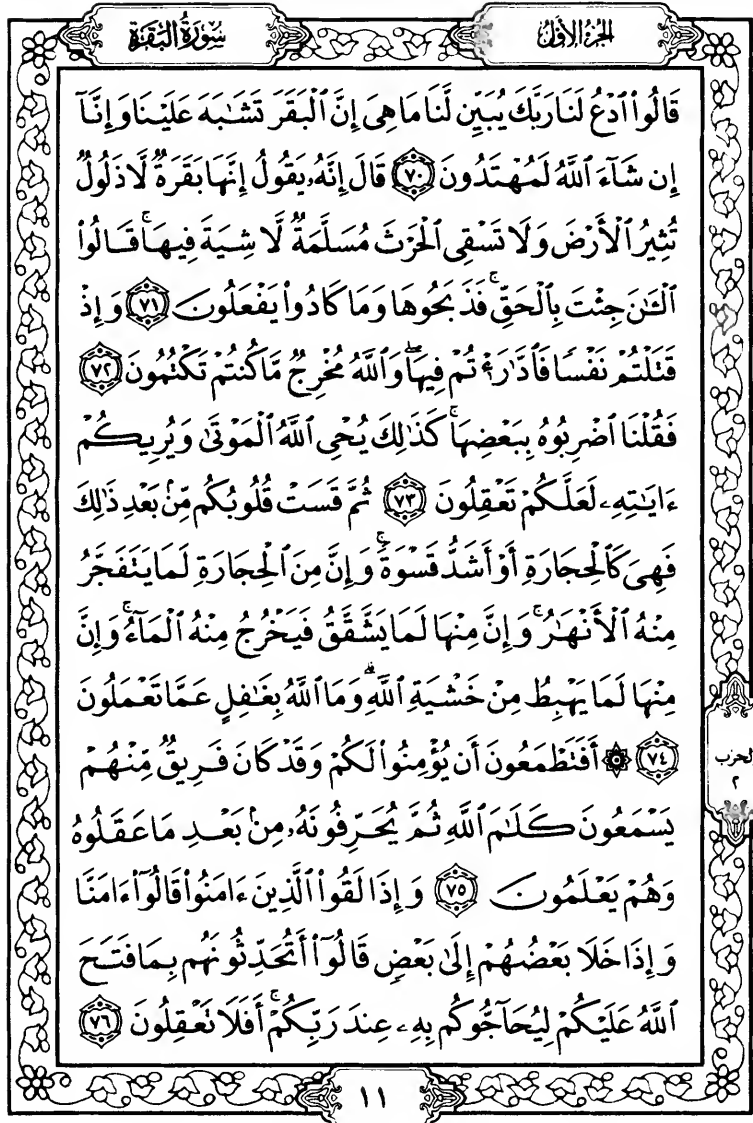 الجزء الأول
سورة البقرة
قَالُوا۟ ٱدْعُ لَنَا رَبَّكَ يُبَيِّن لَّنَا مَا هِىَ إِنَّ ٱلْبَقَرَ تَشَـٰبَهَ عَلَيْنَا وَإِنَّآ
إِن شَآءَ ٱللَّهُ لَمُهْتَدُونَ ٧٠ قَالَ إِنَّهُۥ يَقُولُ إِنَّهَا بَقَرَةٌ لَّا ذَلُولٌ
تُثِيرُ ٱلْأَرْضَ وَلَا تَسْقِى ٱلْحَرْثَ مُسَلَّمَةٌ لَّا شِيَةَ فِيهَا ۚ قَالُوا۟
ٱلْـَٔـٰنَ جِئْتَ بِٱلْحَقِّ ۚ فَذَبَحُوهَا وَمَا كَادُوا۟ يَفْعَلُونَ ٧١ وَإِذْ
قَتَلْتُمْ نَفْسًا فَٱدَّٰرَٰٔتُمْ فِيهَا ۖ وَٱللَّهُ مُخْرِجٌ مَّا كُنتُمْ تَكْتُمُونَ ٧٢
فَقُلْنَا ٱضْرِبُوهُ بِبَعْضِهَا ۚ كَذَٰلِكَ يُحْىِ ٱللَّهُ ٱلْمَوْتَىٰ وَيُرِيكُمْ
ءَايَـٰتِهِۦ لَعَلَّكُمْ تَعْقِلُونَ ٧٣ ثُمَّ قَسَتْ قُلُوبُكُم مِّنۢ بَعْدِ ذَٰلِكَ
فَهِىَ كَٱلْحِجَارَةِ أَوْ أَشَدُّ قَسْوَةً ۚ وَإِنَّ مِنَ ٱلْحِجَارَةِ لَمَا يَتَفَجَّرُ
مِنْهُ ٱلْأَنْهَـٰرُ ۚ وَإِنَّ مِنْهَا لَمَا يَشَّقَّقُ فَيَخْرُجُ مِنْهُ ٱلْمَآءُ ۚ وَإِنَّ
مِنْهَا لَمَا يَهْبِطُ مِنْ خَشْيَةِ ٱللَّهِ ۗ وَمَا ٱللَّهُ بِغَـٰفِلٍ عَمَّا تَعْمَلُونَ
٧٤ ۞ أَفَتَطْمَعُونَ أَن يُؤْمِنُوا۟ لَكُمْ وَقَدْ كَانَ فَرِيقٌ مِّنْهُمْ
يَسْمَعُونَ كَلَـٰمَ ٱللَّهِ ثُمَّ يُحَرِّفُونَهُۥ مِنۢ بَعْدِ مَا عَقَلُوهُ
وَهُمْ يَعْلَمُونَ ٧٥ وَإِذَا لَقُوا۟ ٱلَّذِينَ ءَامَنُوا۟ قَالُوٓا۟ ءَامَنَّا
وَإِذَا خَلَا بَعْضُهُمْ إِلَىٰ بَعْضٍ قَالُوٓا۟ أَتُحَدِّثُونَهُم بِمَا فَتَحَ
ٱللَّهُ عَلَيْكُمْ لِيُحَآجُّوكُم بِهِۦ عِندَ رَبِّكُمْ ۚ أَفَلَا تَعْقِلُونَ ٧٦
الحزب
٢
١١